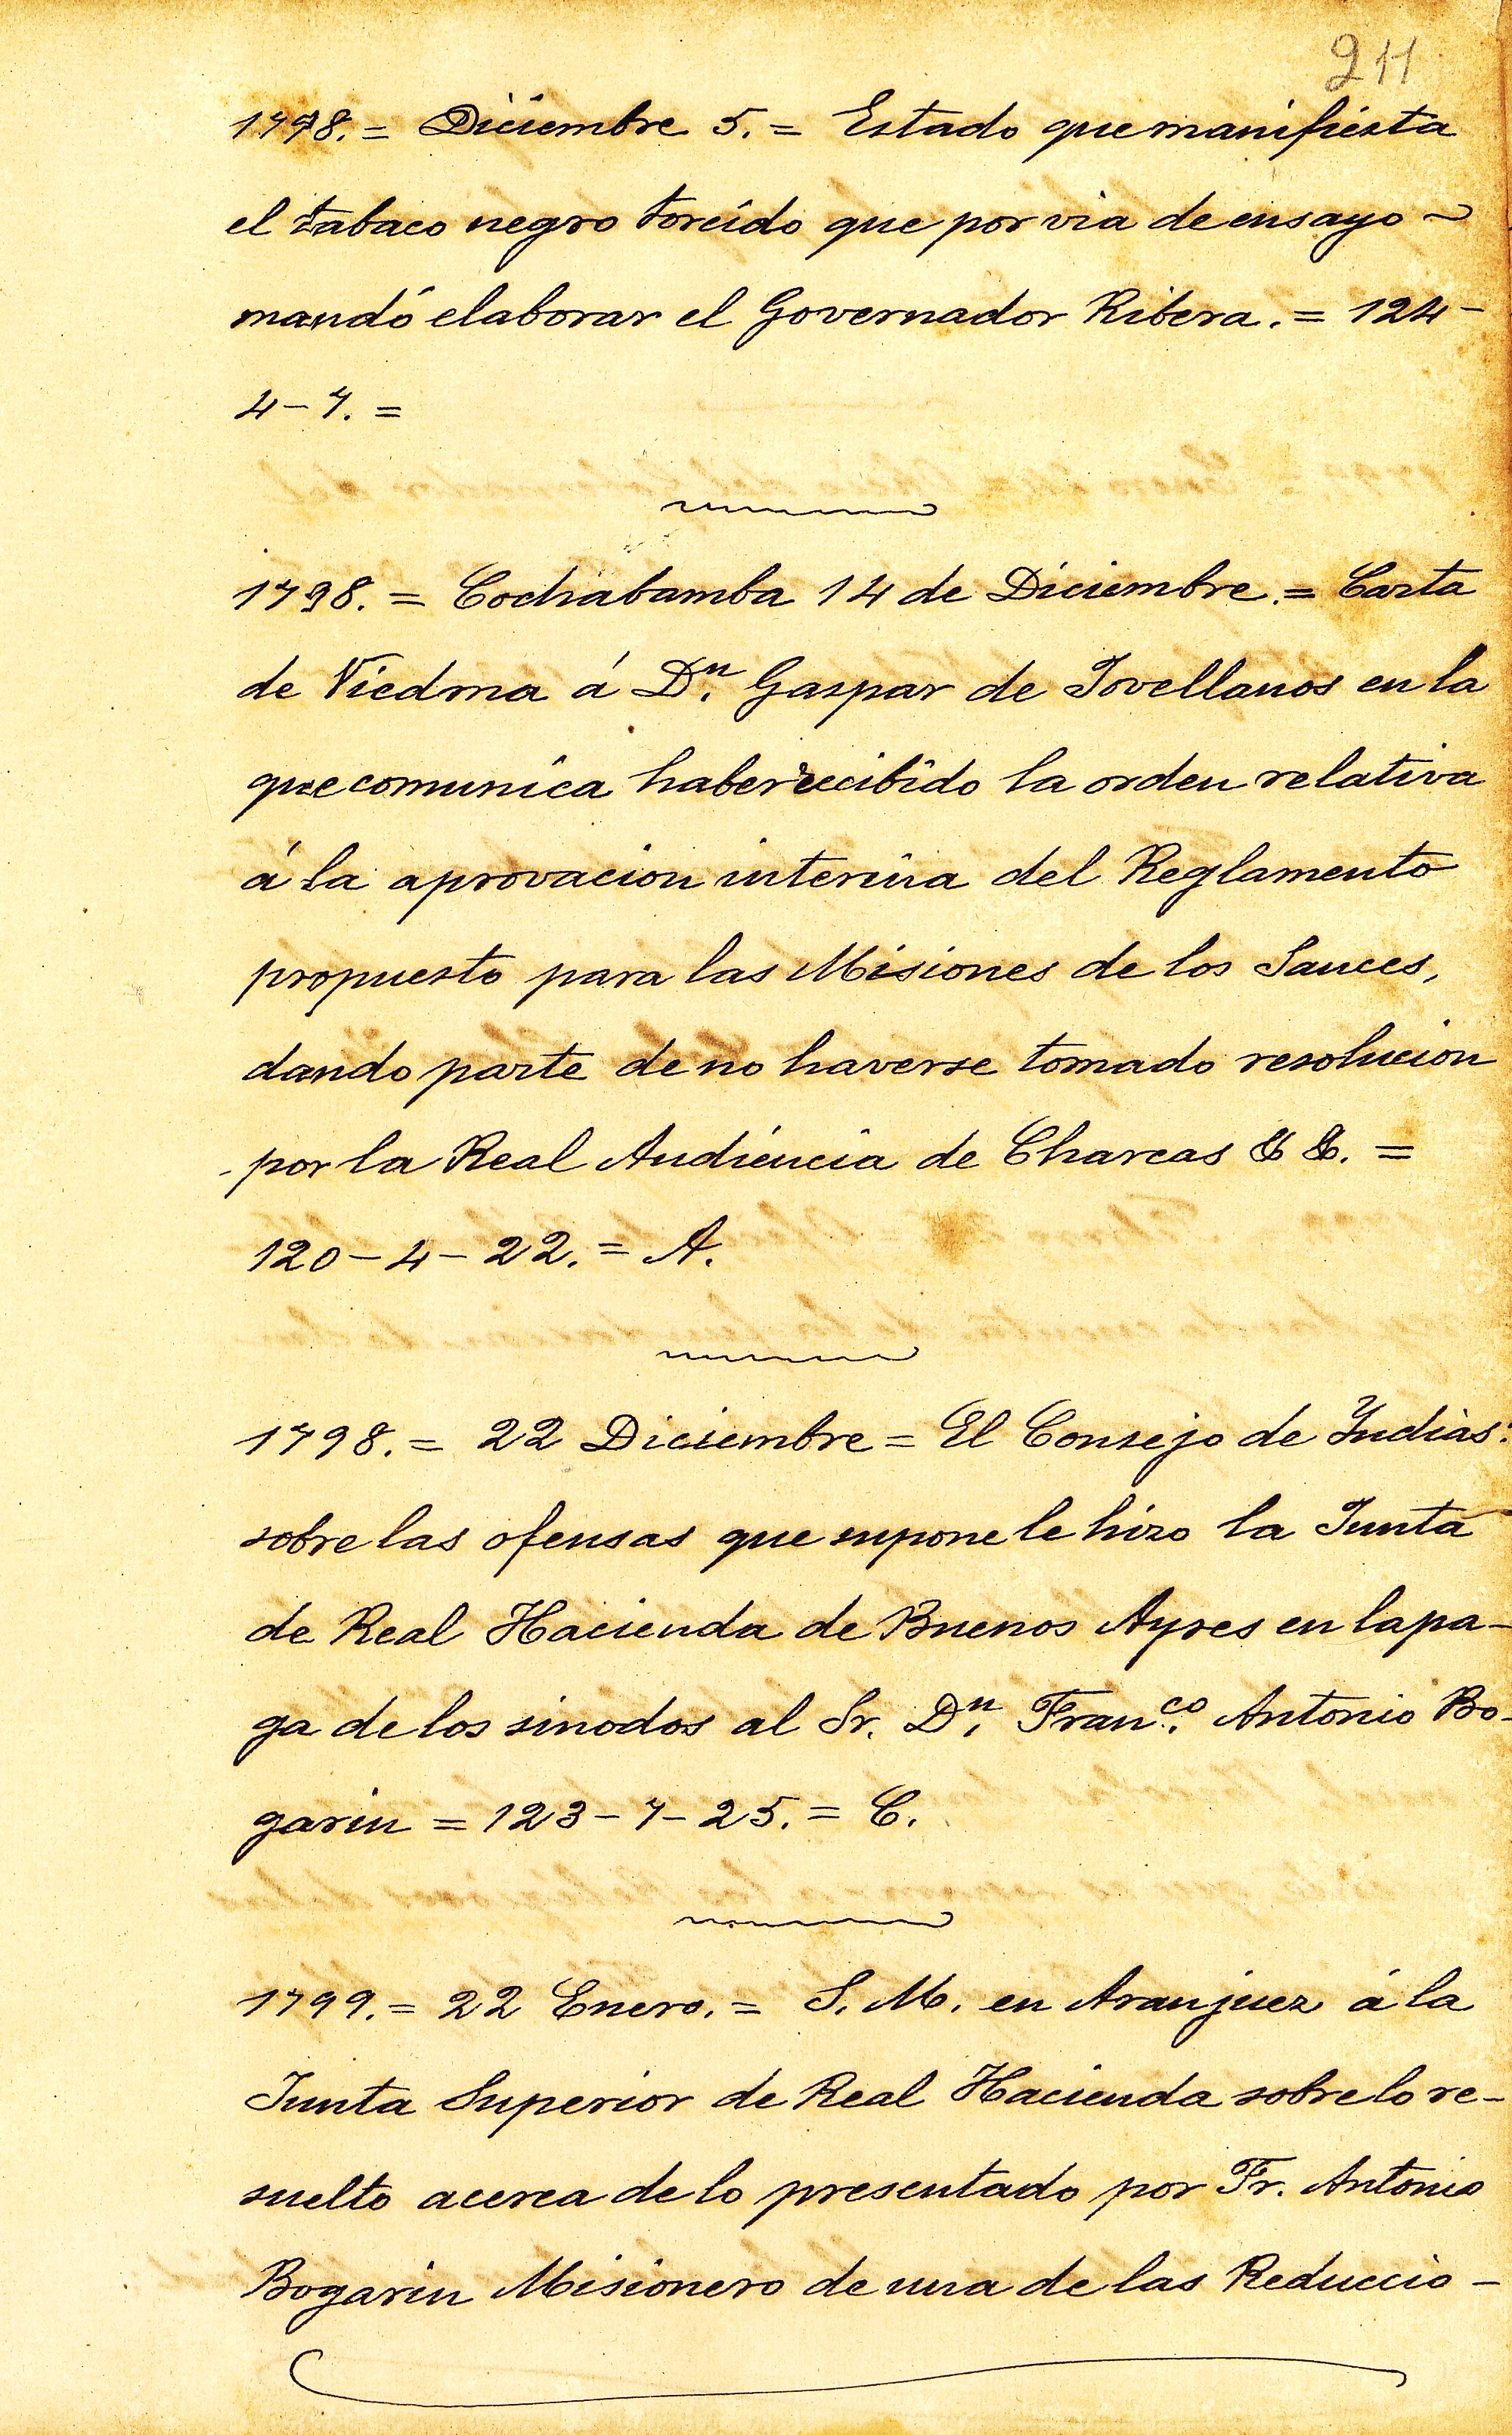 211
1798.= Diciembre 5.= Estado que manifiesta
el tabaco negro torcido que por via de ensayo ~
mandó elaborar el Governador Ribera.= 124-
4-7.=
1798.= Cochabamba 14 de Diciembre.= Carta
de Viedma á Dn. Gaspar de Jovellanos en la
que comunica haber recibido la orden relativa
á la aprovacion interina del Reglamento
propuesto para las Misiones de los Sauces,
dando parte de no haverse tomado resolucion
por la Real Audiencia de Charcas & &. =
120-4-22.= A.
1798.= 22 Diciembre = El Consejo de Yndias:
sobre las ofensas que supone le hizo la Junta
de Real Hacienda de Buenos Ayres en la pa-
ga de los sinodos al Sr. Dn. Franco. Antonio Bo-
garin = 123-7-25.= C.
1799.= 22 Enero.= S. M. en Aranjuez á la
Junta Superior de Real Hacienda sobre lo re-
suelto acerca de lo presentado por Fr. Antonio
Bogarin Misionero de una de las Reduccio-